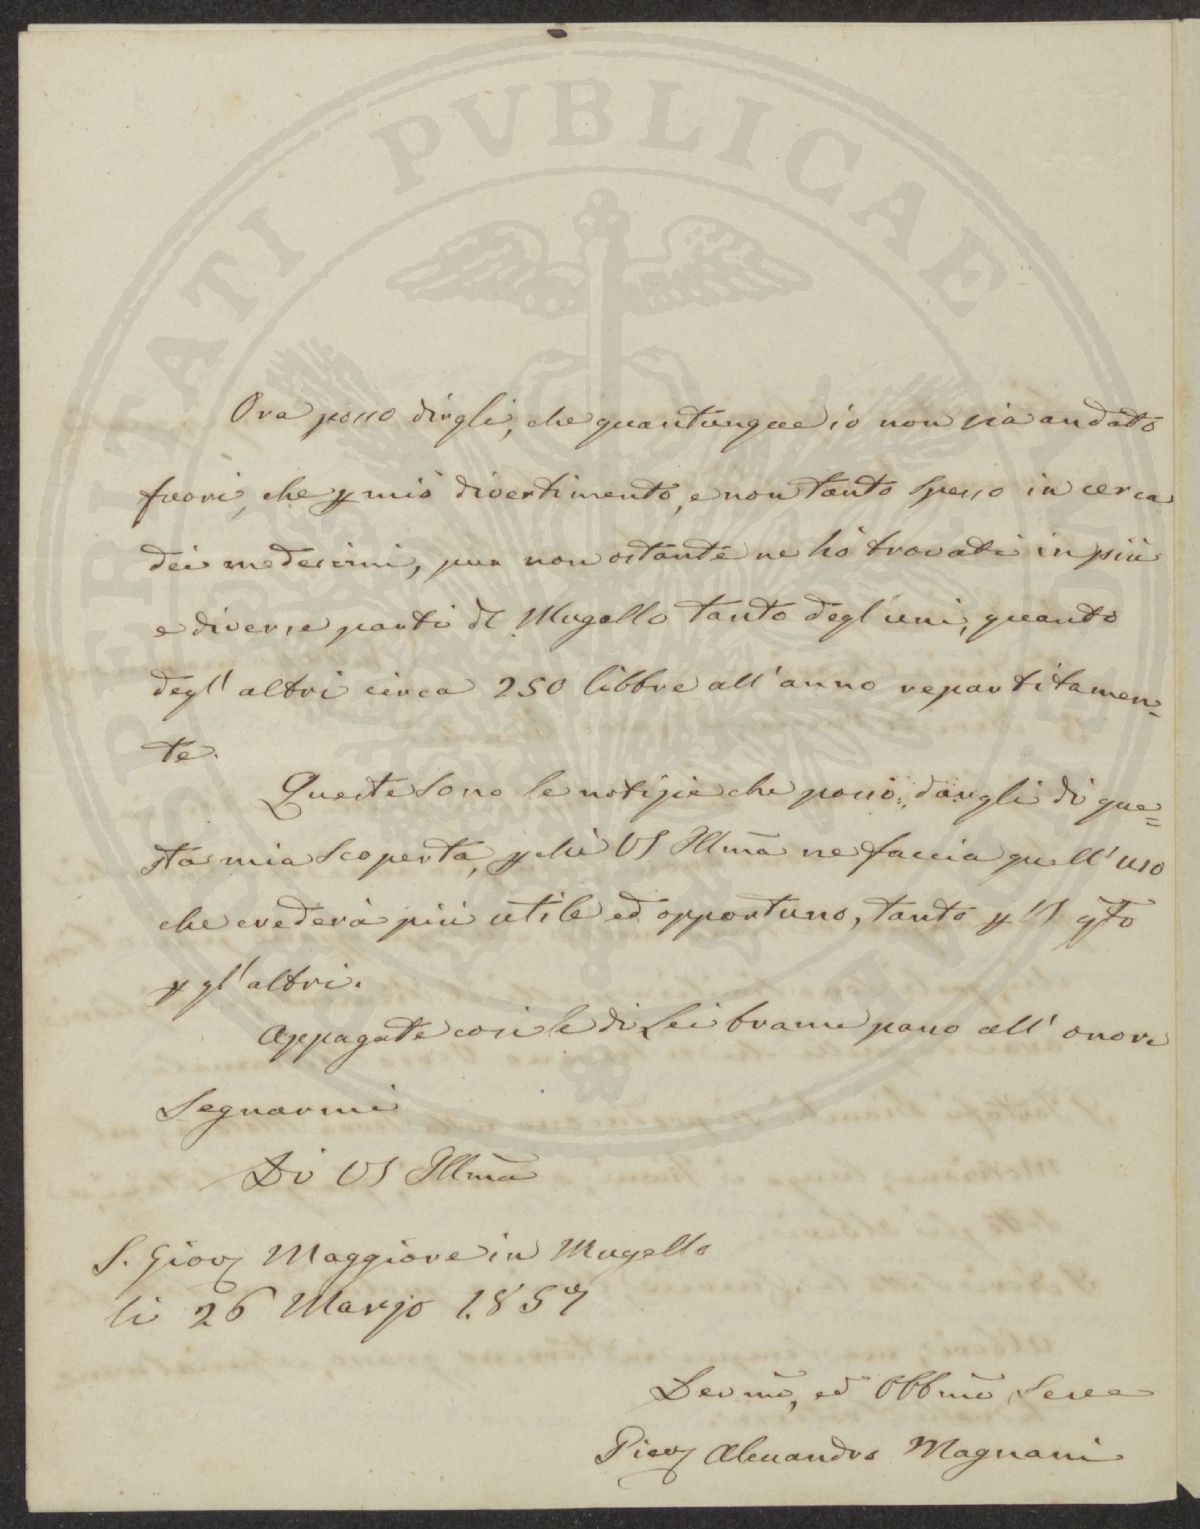 Ora posso dirgli, che quantunque io non sia andato
fuori, che p mio divertimento, e non tanto spesso in cerca
dei medesimi, pur non ostante ne hò trovati in più
e diverse parti del Mugello tanto degl'uni, quanto
degl'altri circa 250 libbre all'anno repartitamen-
te.
Queste sono le notizie che posso dargli di que=
sta mia scoperta, p chè VS Illma ne faccia quell'uso
che crederà più utile ed opportuno, tanto p VS qto
p gl'altri.
Appagate così le di Lei brame passo all'onore
segnarmi
Di VS Illma
S. Giov Maggiore in Mugello
li 26 Marzo 1857
Devmo, ed Obbmo Serve
Piev Alessandro Magnani
PROSPERITATI PVBLICAE